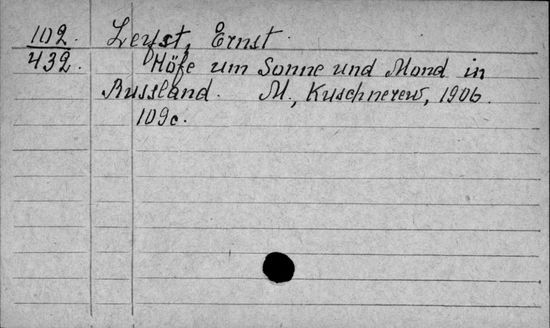 102. Leyst, Ernst.
432. Höfe um Sonne und Mond in
Russland. M., Kuschnerew, 1906.
109c.